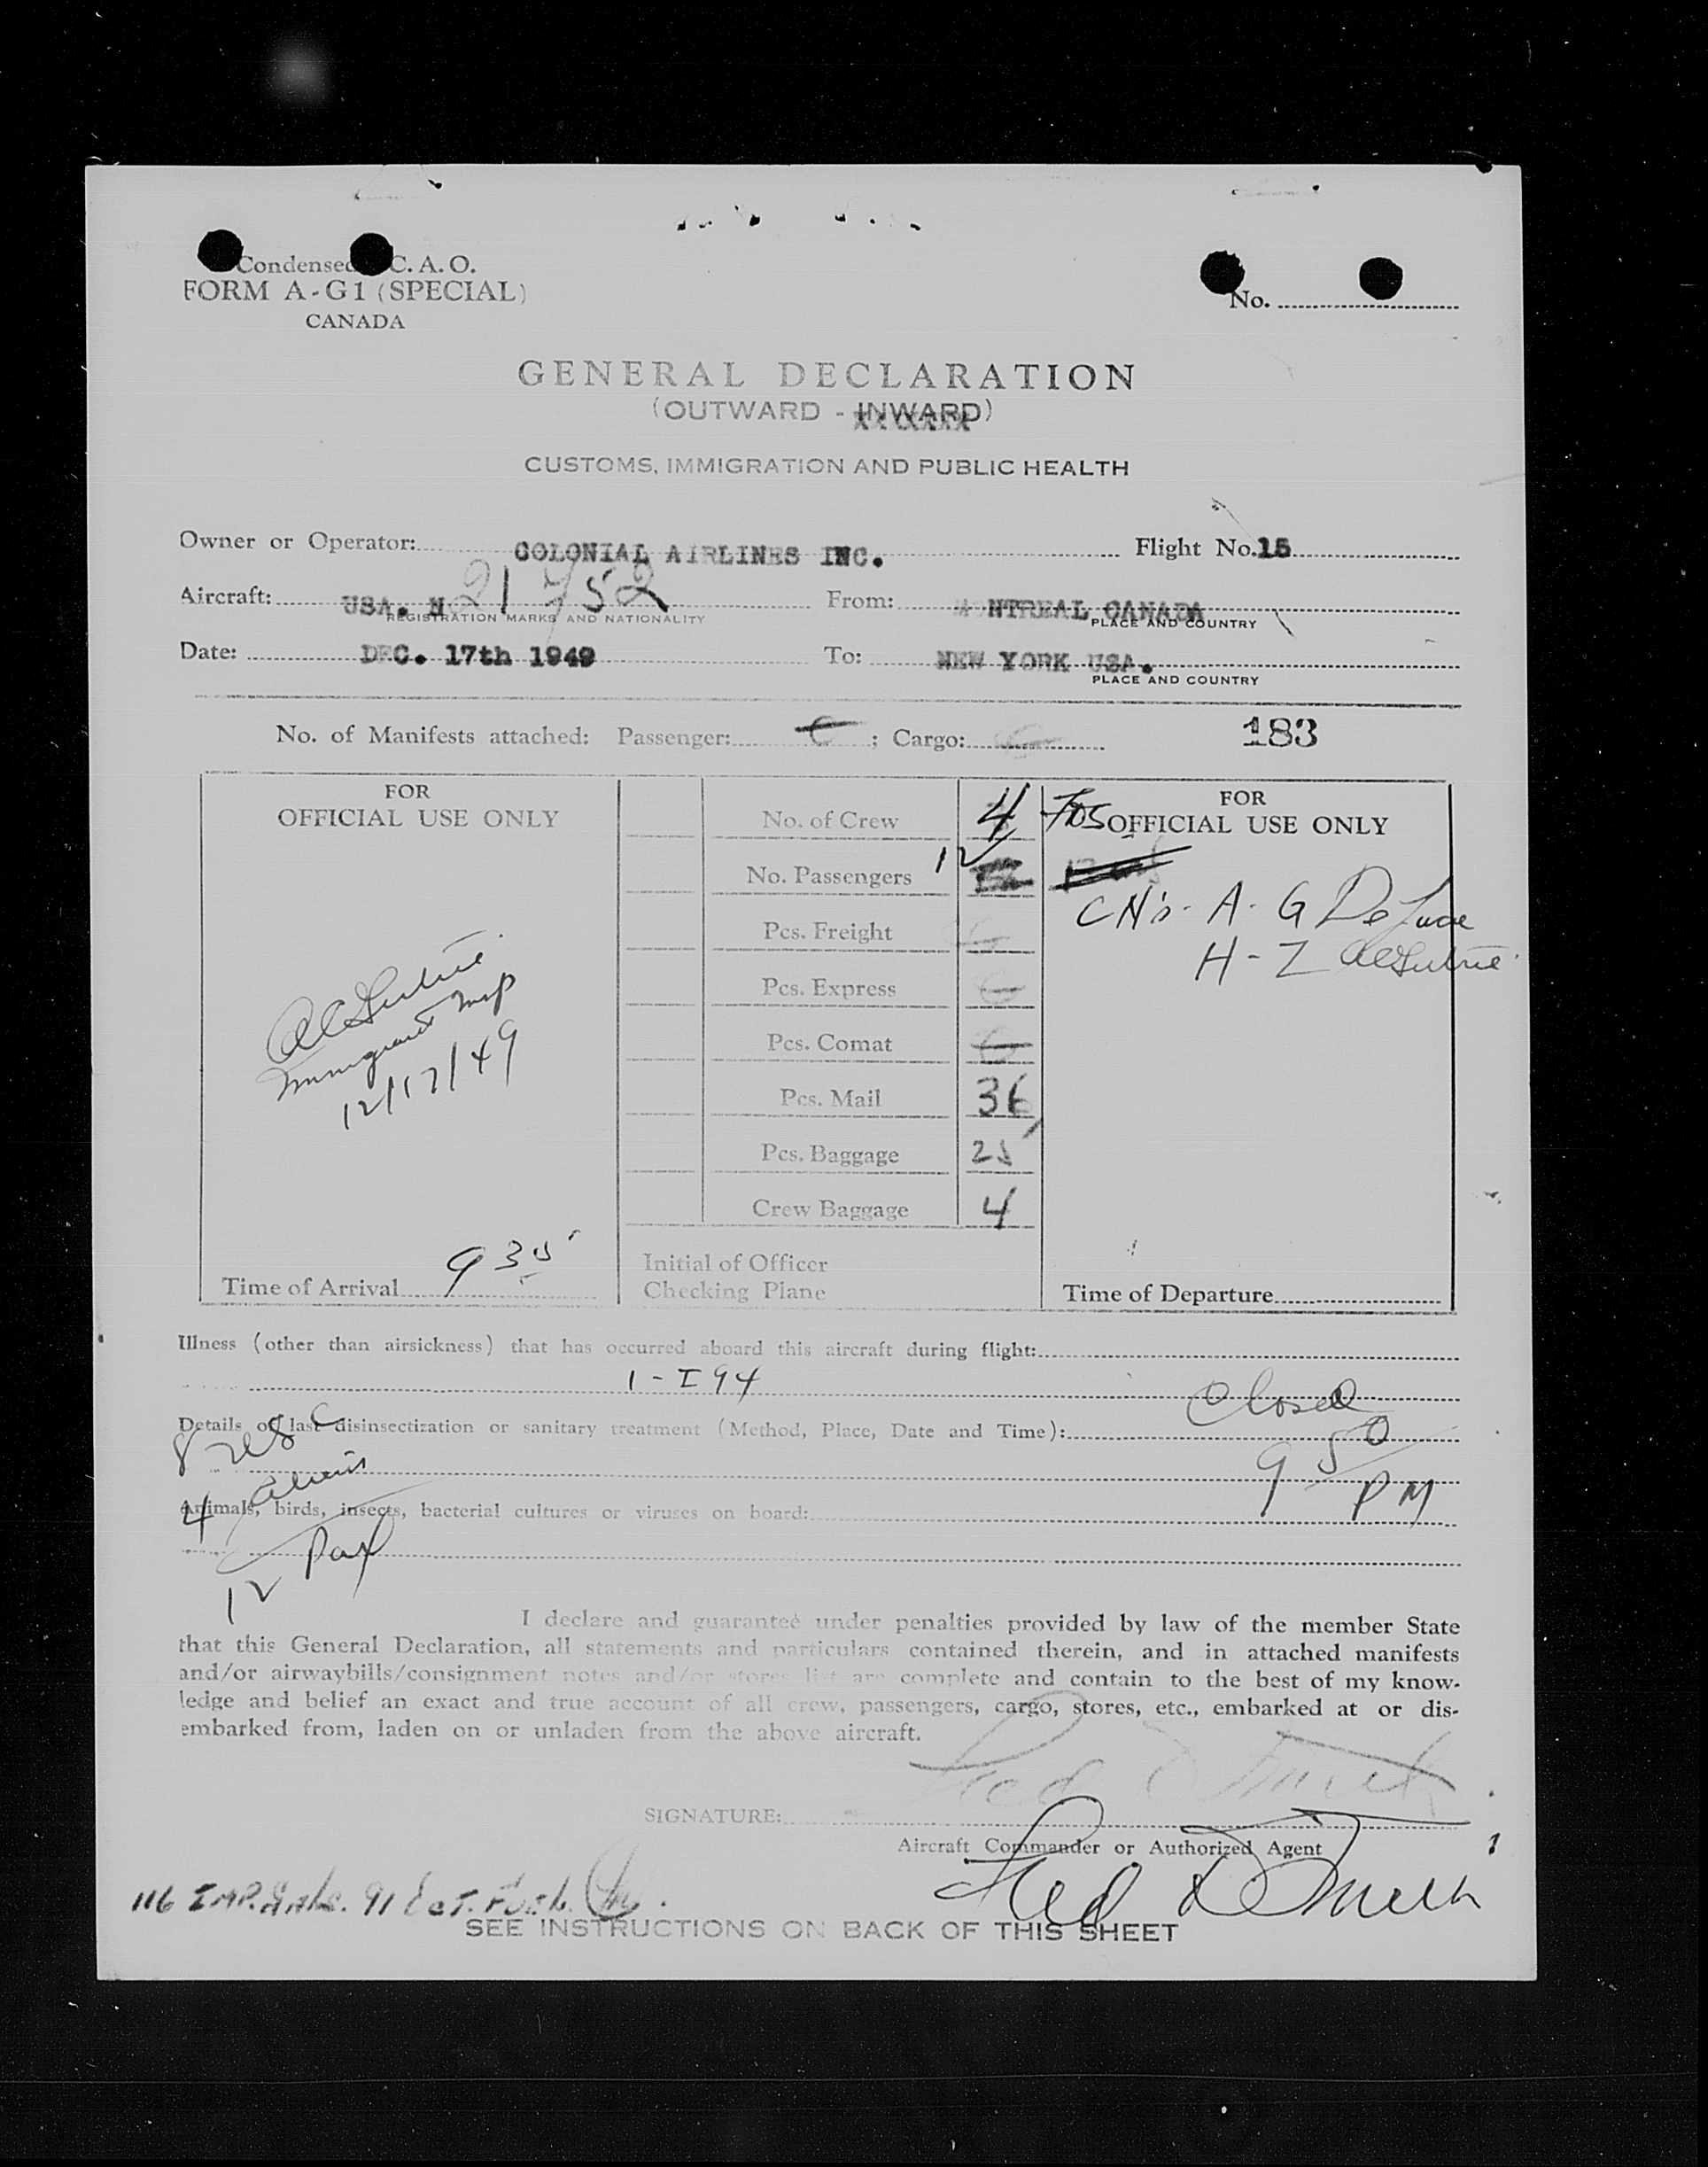 Condensed C. A. O.
FORM A-G1 (SPECIAL)
CANADA
No.
GENERAL DECLARATION
(OUTWARD - INWARD)
CUSTOMS, IMMIGRATION AND PUBLIC HEALTH
Owner or Operator: COLONIAL AIRLINES INC. Flight No. 15
Aircraft: USA. N 21752 From: MONTREAL CANADA
REGISTRATION MARKS AND NATIONALITY PLACE AND COUNTRY
Date: DEC. 17th 1949 To: NEW YORK USA.
PLACE AND COUNTRY
No. of Manifests attached: Passenger: ; Cargo: 183
FOR
OFFICIAL USE ONLY
Immigrant Insp
12/17/49
Time of Arrival 935
No. of Crew 4
No. Passengers 12
Pcs. Freight
Pcs. Express
Pcs. Comat
Pcs. Mail 36
Pcs. Baggage 25
Crew Baggage 4
Initial of Officer
Checking Plane
FOR
OFFICIAL USE ONLY
A - G De Luca
H - Z
Time of Departure
Illness (other than airsickness) that has occurred aboard this aircraft during flight:
1 - I 94
Closed
Details of last disinsectization or sanitary treatment (Method, Place, Date and Time):
8 USC
950
4 aliens
PM
Animals, birds, insects, bacterial cultures or viruses on board:
12 Pax
I declare and guarantee under penalties provided by law of the member State
that this General Declaration, all statements and particulars contained therein, and in attached manifests
and/or airwaybills/consignment notes and/or stores list are complete and contain to the best of my know-
ledge and belief an exact and true account of all crew, passengers, cargo, stores, etc., embarked at or dis-
embarked from, laden on or unladen from the above aircraft.
SIGNATURE:
Aircraft Commander or Authorized Agent
SEE INSTRUCTIONS ON BACK OF THIS SHEET